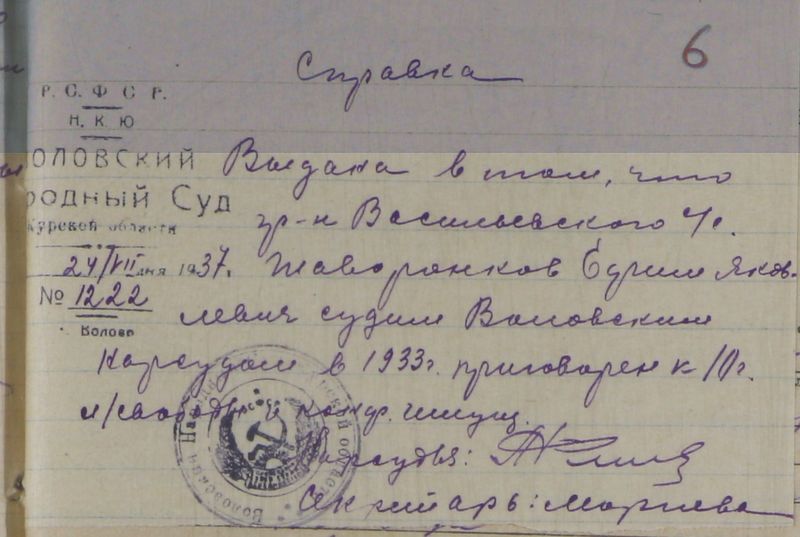 6
Справка
Р. С. Ф. С. Р.
Н. К. Ю
оловский
родный Суд
Курской области
24/VII дня 1937 г.
№ 1222
Волово
Выдана в том, что
гр-н Васильевского с/с.
Жаворонков Ефим Яков-
левич судим Воловским
Нарсудом в 1933 г. приговорен к 10 г.
л/свободы и конф. имущ.
Нарсудья:
Секретарь: